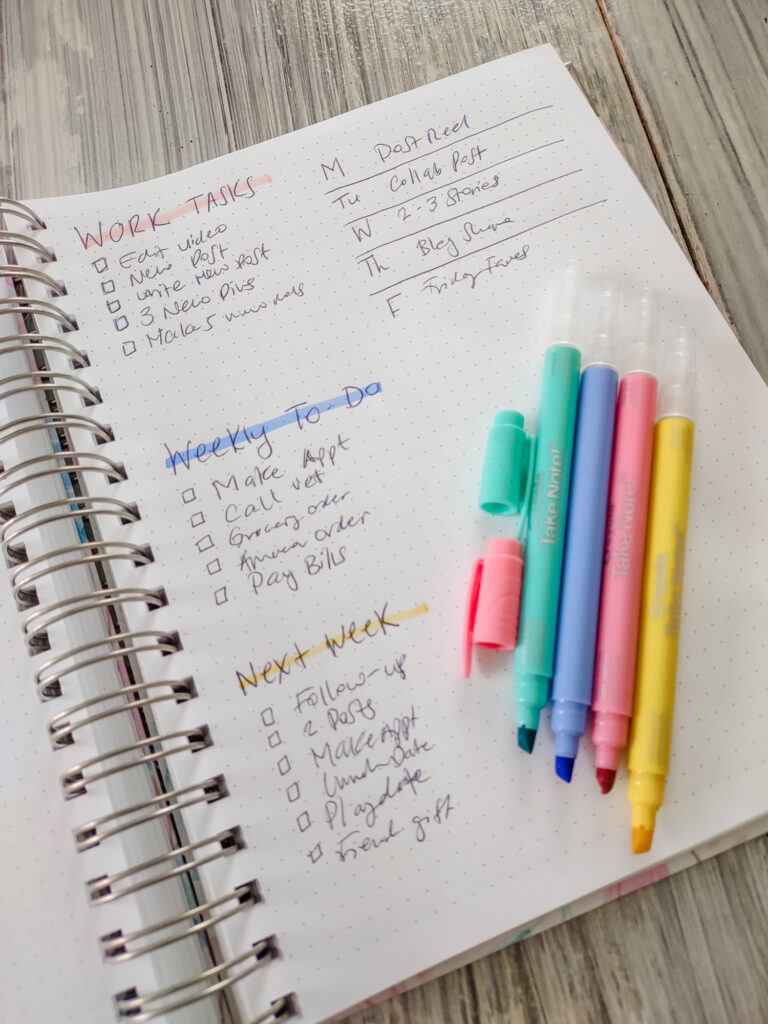 WORK TASKS
Edit video
New Post
write new post
3 New Pins
Make 5
M Post Reel
Tu Collab Post
W 2-3 Stories
Th Blog Share
F Friday Faves
Weekly To-Do
Make Appt
Call vet
Grocery order
order
Pay Bills
Next Week
Follow-up
2 Posts
Make Appt
Lunch Date
Playdate
Friend gift
Take Note!
Take Note!
Take Note!